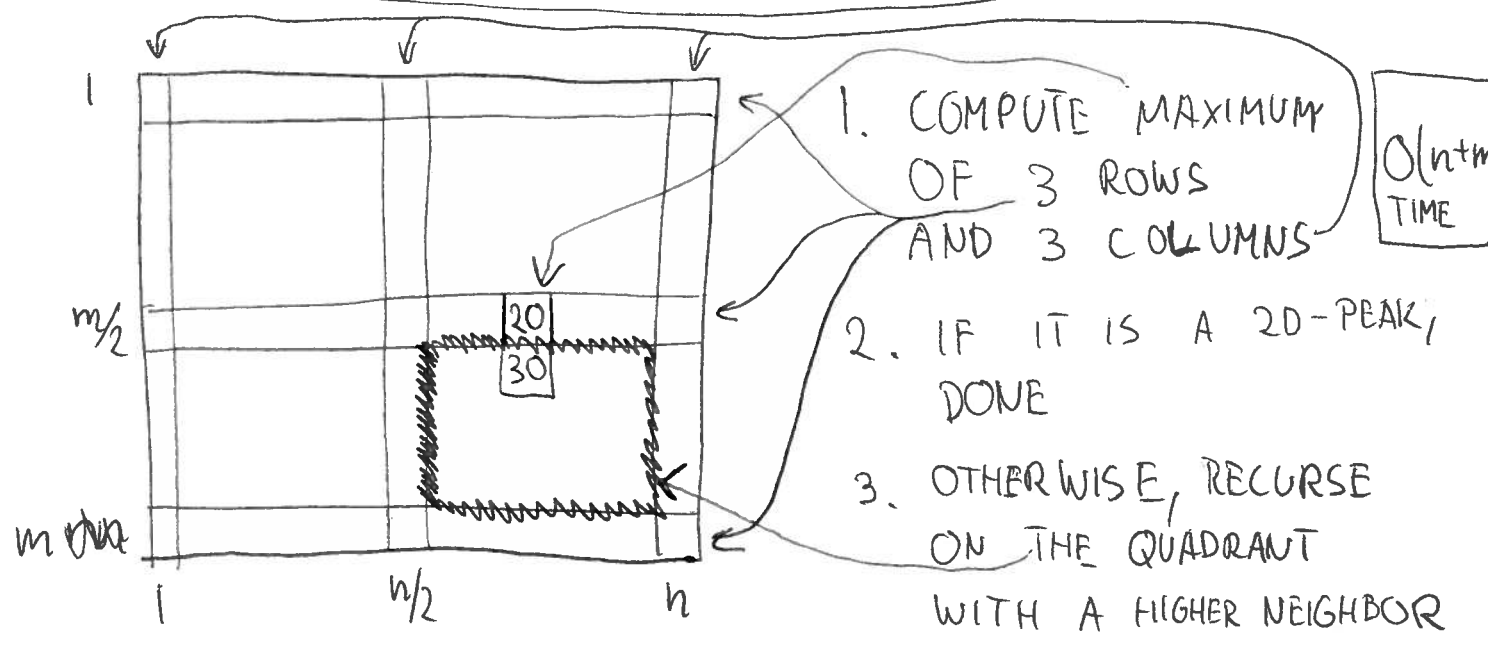 1
m/2
20
30
m
1
n/2
n
1. COMPUTE MAXIMUM
OF 3 ROWS
AND 3 COLUMNS
2. IF IT IS A 2D-PEAK,
DONE
3. OTHERWISE, RECURSE
ON THE QUADRANT
WITH A HIGHER NEIGHBOR
O(n+m
TIME